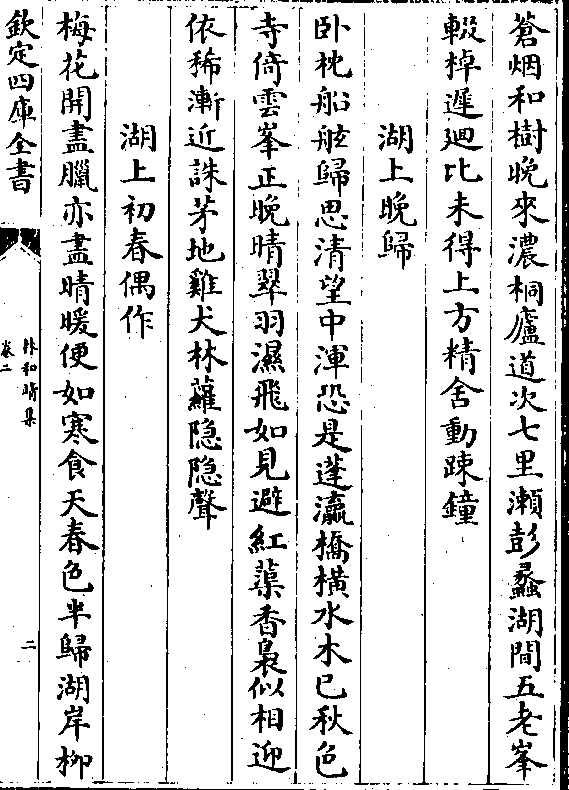 蒼烟和樹晚來濃桐廬道次七里瀬彭蠡湖間五老峯
輟棹遲廻比未得上方精舍動踈鐘
湖上晚歸
卧枕船舷歸思清望中渾恐是蓬瀛橋橫水木巳秋色
寺倚雲峯正晚晴翠羽濕飛如見避紅蕖香裊似相迎
依稀漸近誅茅地雞犬林蘿隐隐聲
湖上初春偶作
梅花開盡臘亦盡晴暖便如寒食天春色半歸湖岸栁
欽定四庫全書
林和靖集
卷二
二